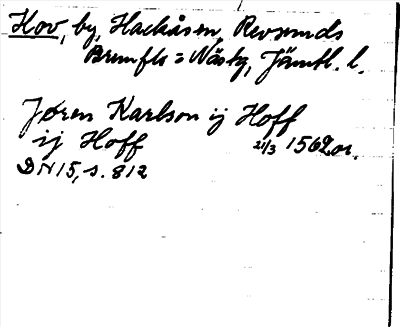 Hov, by, Hackåsen, Revsunds
Brunflo = Näsky, Jämtl. l.
Jøren Karlson ij Hoff
ij Hoff 21/3 1562 or.
DN 15, s. 812